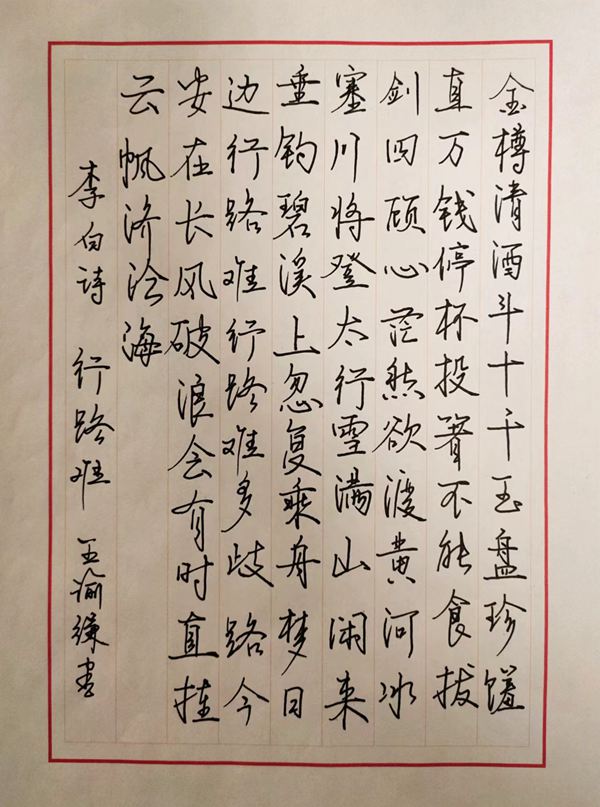 金樽清酒斗十千玉盘珍馐
直万钱停杯投箸不能食拔
剑四顾心茫然欲渡黄河冰
塞川将登太行雪满山闲来
垂钓碧溪上忽复乘舟梦日
边行路难行路难多歧路今
安在长风破浪会有时直挂
云帆济沧海
李白诗 行路难 王渝缐书